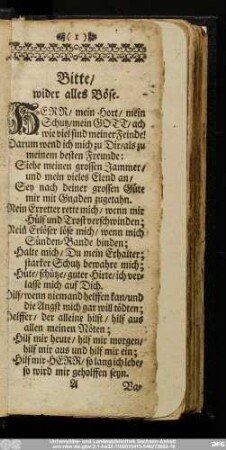 ( 1 )
Bitte/
wider alles Böse.
HERR/ mein Hort/ mein
Schutz/ mein GOTT/ ach
wie viel sind meiner Feinde!
Darum wend ich mich zu Dir/ als zu
meinem besten Freunde:
Siehe meinen grossen Jammer/
und mein vieles Elend an/
Sey nach deiner grossen Güte
mir mit Gnaden zugethan.
Mein Erretter rette mich/ wenn mir
Hülf und Trost verschwinden;
Mein Erlöser löse mich/ wenn mich
Sünden-Bande binden;
Halte mich/ Du mein Erhalter;
starker Schutz bewahre mich;
Hüte/ schütze/ guter Hirte/ ich ver-
lasse mich auf Dich.
Hilf/ wenn niemand helffen kan/ und
die Angst mich gar will tödten;
Helffer/ der alleine hilft/ hilf aus
allen meinen Nöten;
Hilf mir heute/ hilf mir morgen/
hilf mir aus und hilf mir ein;
Hilf mir HERR/ so lang ich lebe/
so wird mir geholffen seyn.
A
Universitäts- und Landesbibliothek Sachsen-Anhalt